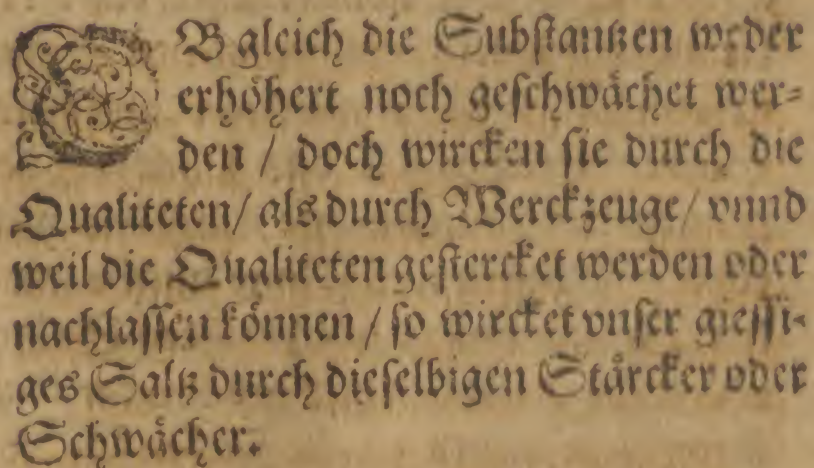 OB gleich die Substantzen weder
erhöhert noch geschwächet wer-
den / doch wircken sie durch die
Qualiteten / als durch Werckzeuge / vnnd
weil die Qualiteten gestercket werden oder
nachlassen können / so wircket vnser giessi-
ges Saltz durch dieselbigen Stärcker oder
Schwächer.